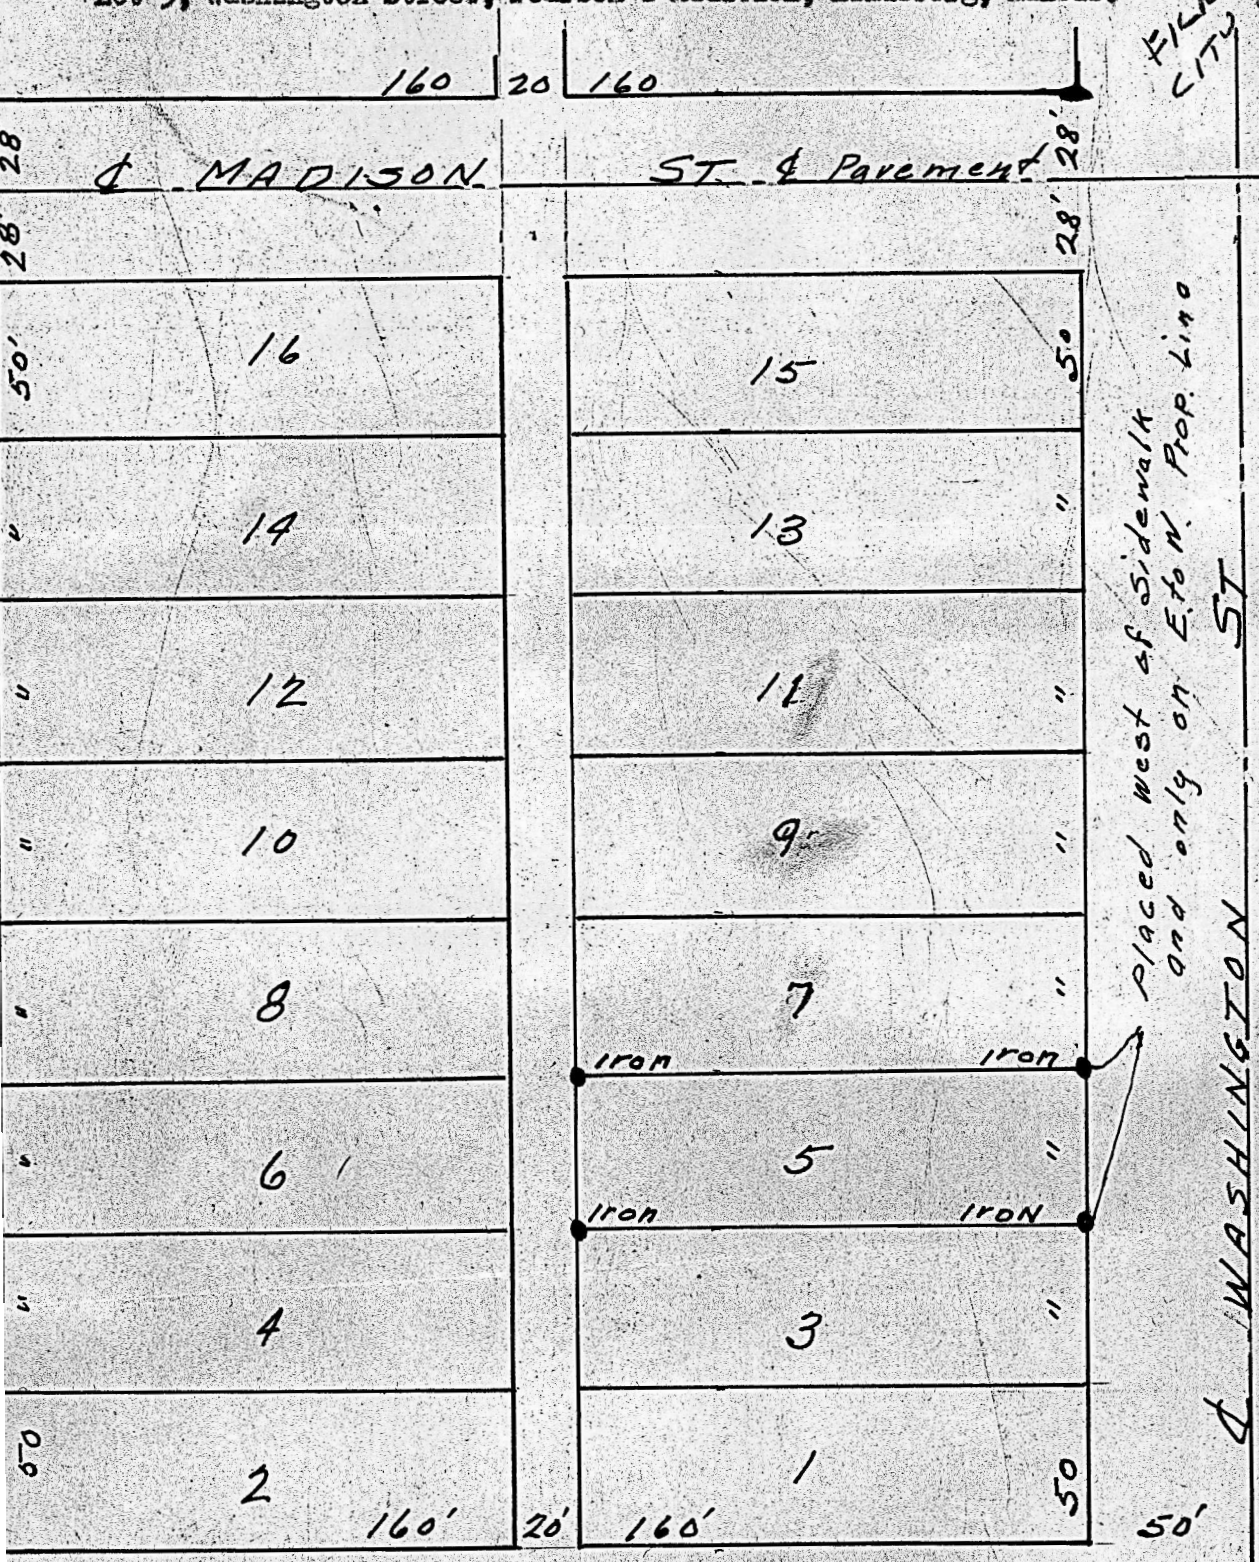 Lot 5, Washington Street,
160 20 160
28 28'
℄ MADISON ST. ℄ Pavement
28' 28'
50' 16 15 50
" 14 13 "
" 12 11 "
" 10 9 "
" 8 7 "
Iron Iron
" 6 5 "
Iron IroN
" 4 3 "
50 2 1 50
160' 20' 160' 50'
Placed West of Sidewalk
and only on E. to W. Prop. Line
℄ WASHINGTON ST